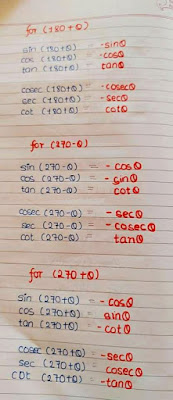 for (180+θ)
sin (180+θ) = -sinθ
cos (180+θ) = -cosθ
tan (180+θ) = tanθ
cosec (180+θ) = -cosecθ
sec (180+θ) = -secθ
cot (180+θ) = cotθ
for (270-θ)
sin (270-θ) = -cosθ
cos (270-θ) = -sinθ
tan (270-θ) = cotθ
cosec (270-θ) = -secθ
sec (270-θ) = -cosecθ
cot (270-θ) = tanθ
for (270+θ)
sin (270+θ) = -cosθ
cos (270+θ) = sinθ
tan (270+θ) = -cotθ
cosec (270+θ) = -secθ
sec (270+θ) = cosecθ
cot (270+θ) = -tanθ